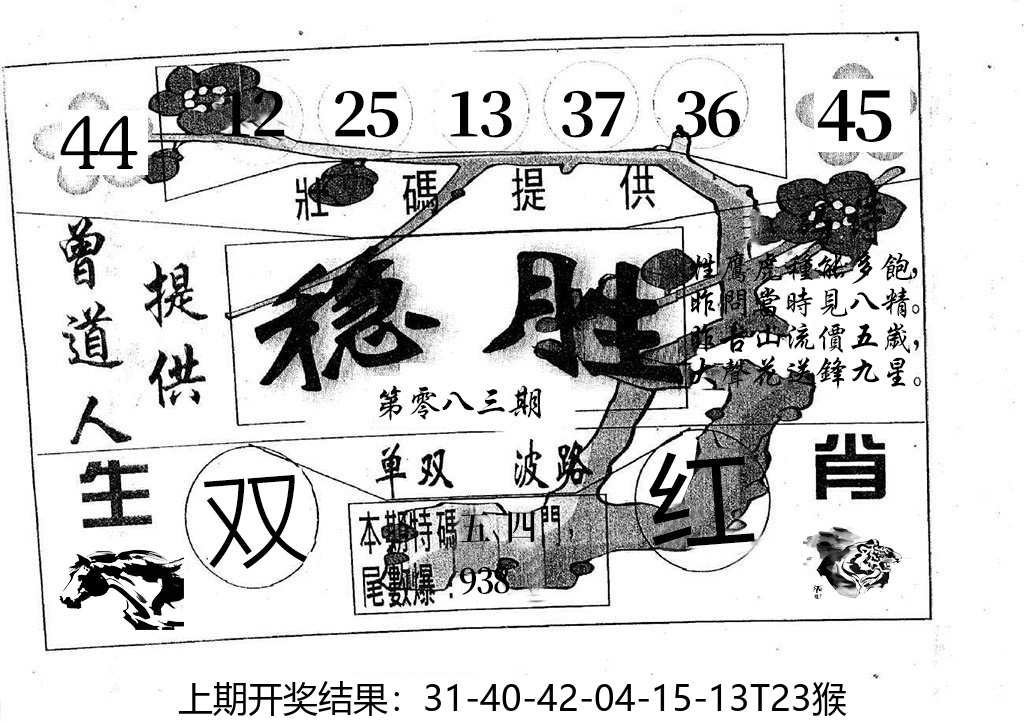 44 12 25 13 37 36 45
壯碼提供
曾道人
提供
稳胜
第零八三期
性鷹虎種能多飽，
昨惘當時見八精。
昨吾山流價五歲，
大聲花送鋒九星。
单双 波路
生 双 红 肖
本期特碼五、四門，
尾數爆：938
上期开奖结果：31-40-42-04-15-13T23猴